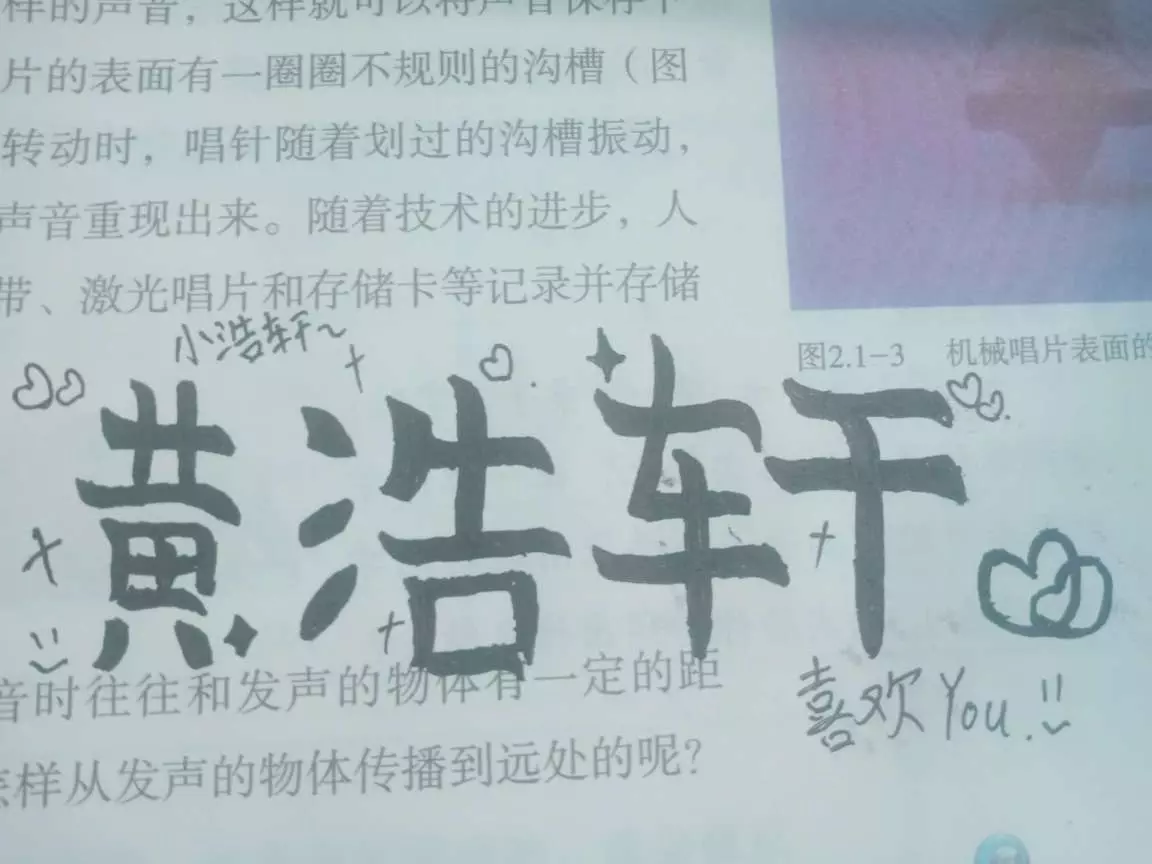 样的声音，这样就可以将声音保存下
片的表面有一圈圈不规则的沟槽（图
转动时，唱针随着划过的沟槽振动，
声音重现出来。随着技术的进步，人
带、激光唱片和存储卡等记录并存储
小浩轩~
图2.1-3 机械唱片表面的
黄浩轩
喜欢You.
音时往往和发声的物体有一定的距
怎样从发声的物体传播到远处的呢？